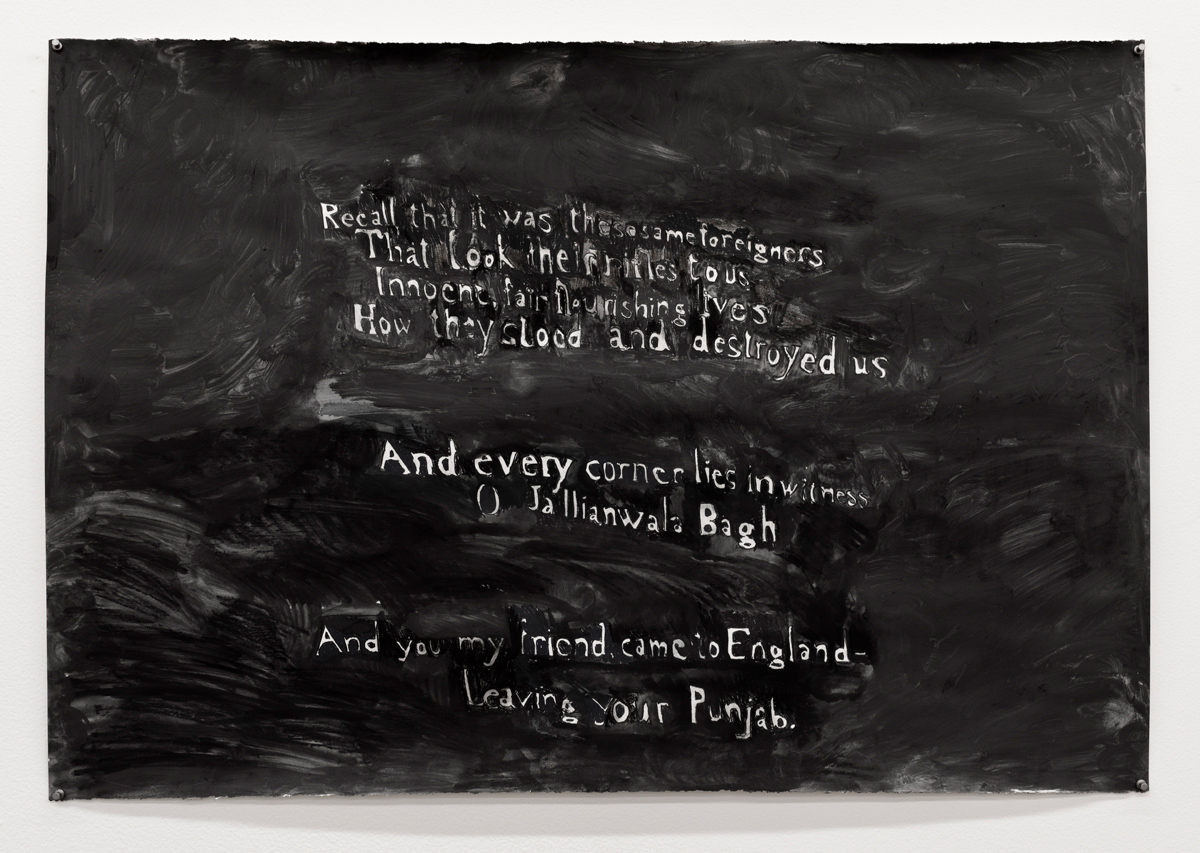 Recall that it was these same foreigners
That took their rifles to us
Innocent, fair flourishing lives
How they stood and destroyed us
And every corner lies in witness
O Jallianwala Bagh
And you my friend, came to England-
Leaving your Punjab.